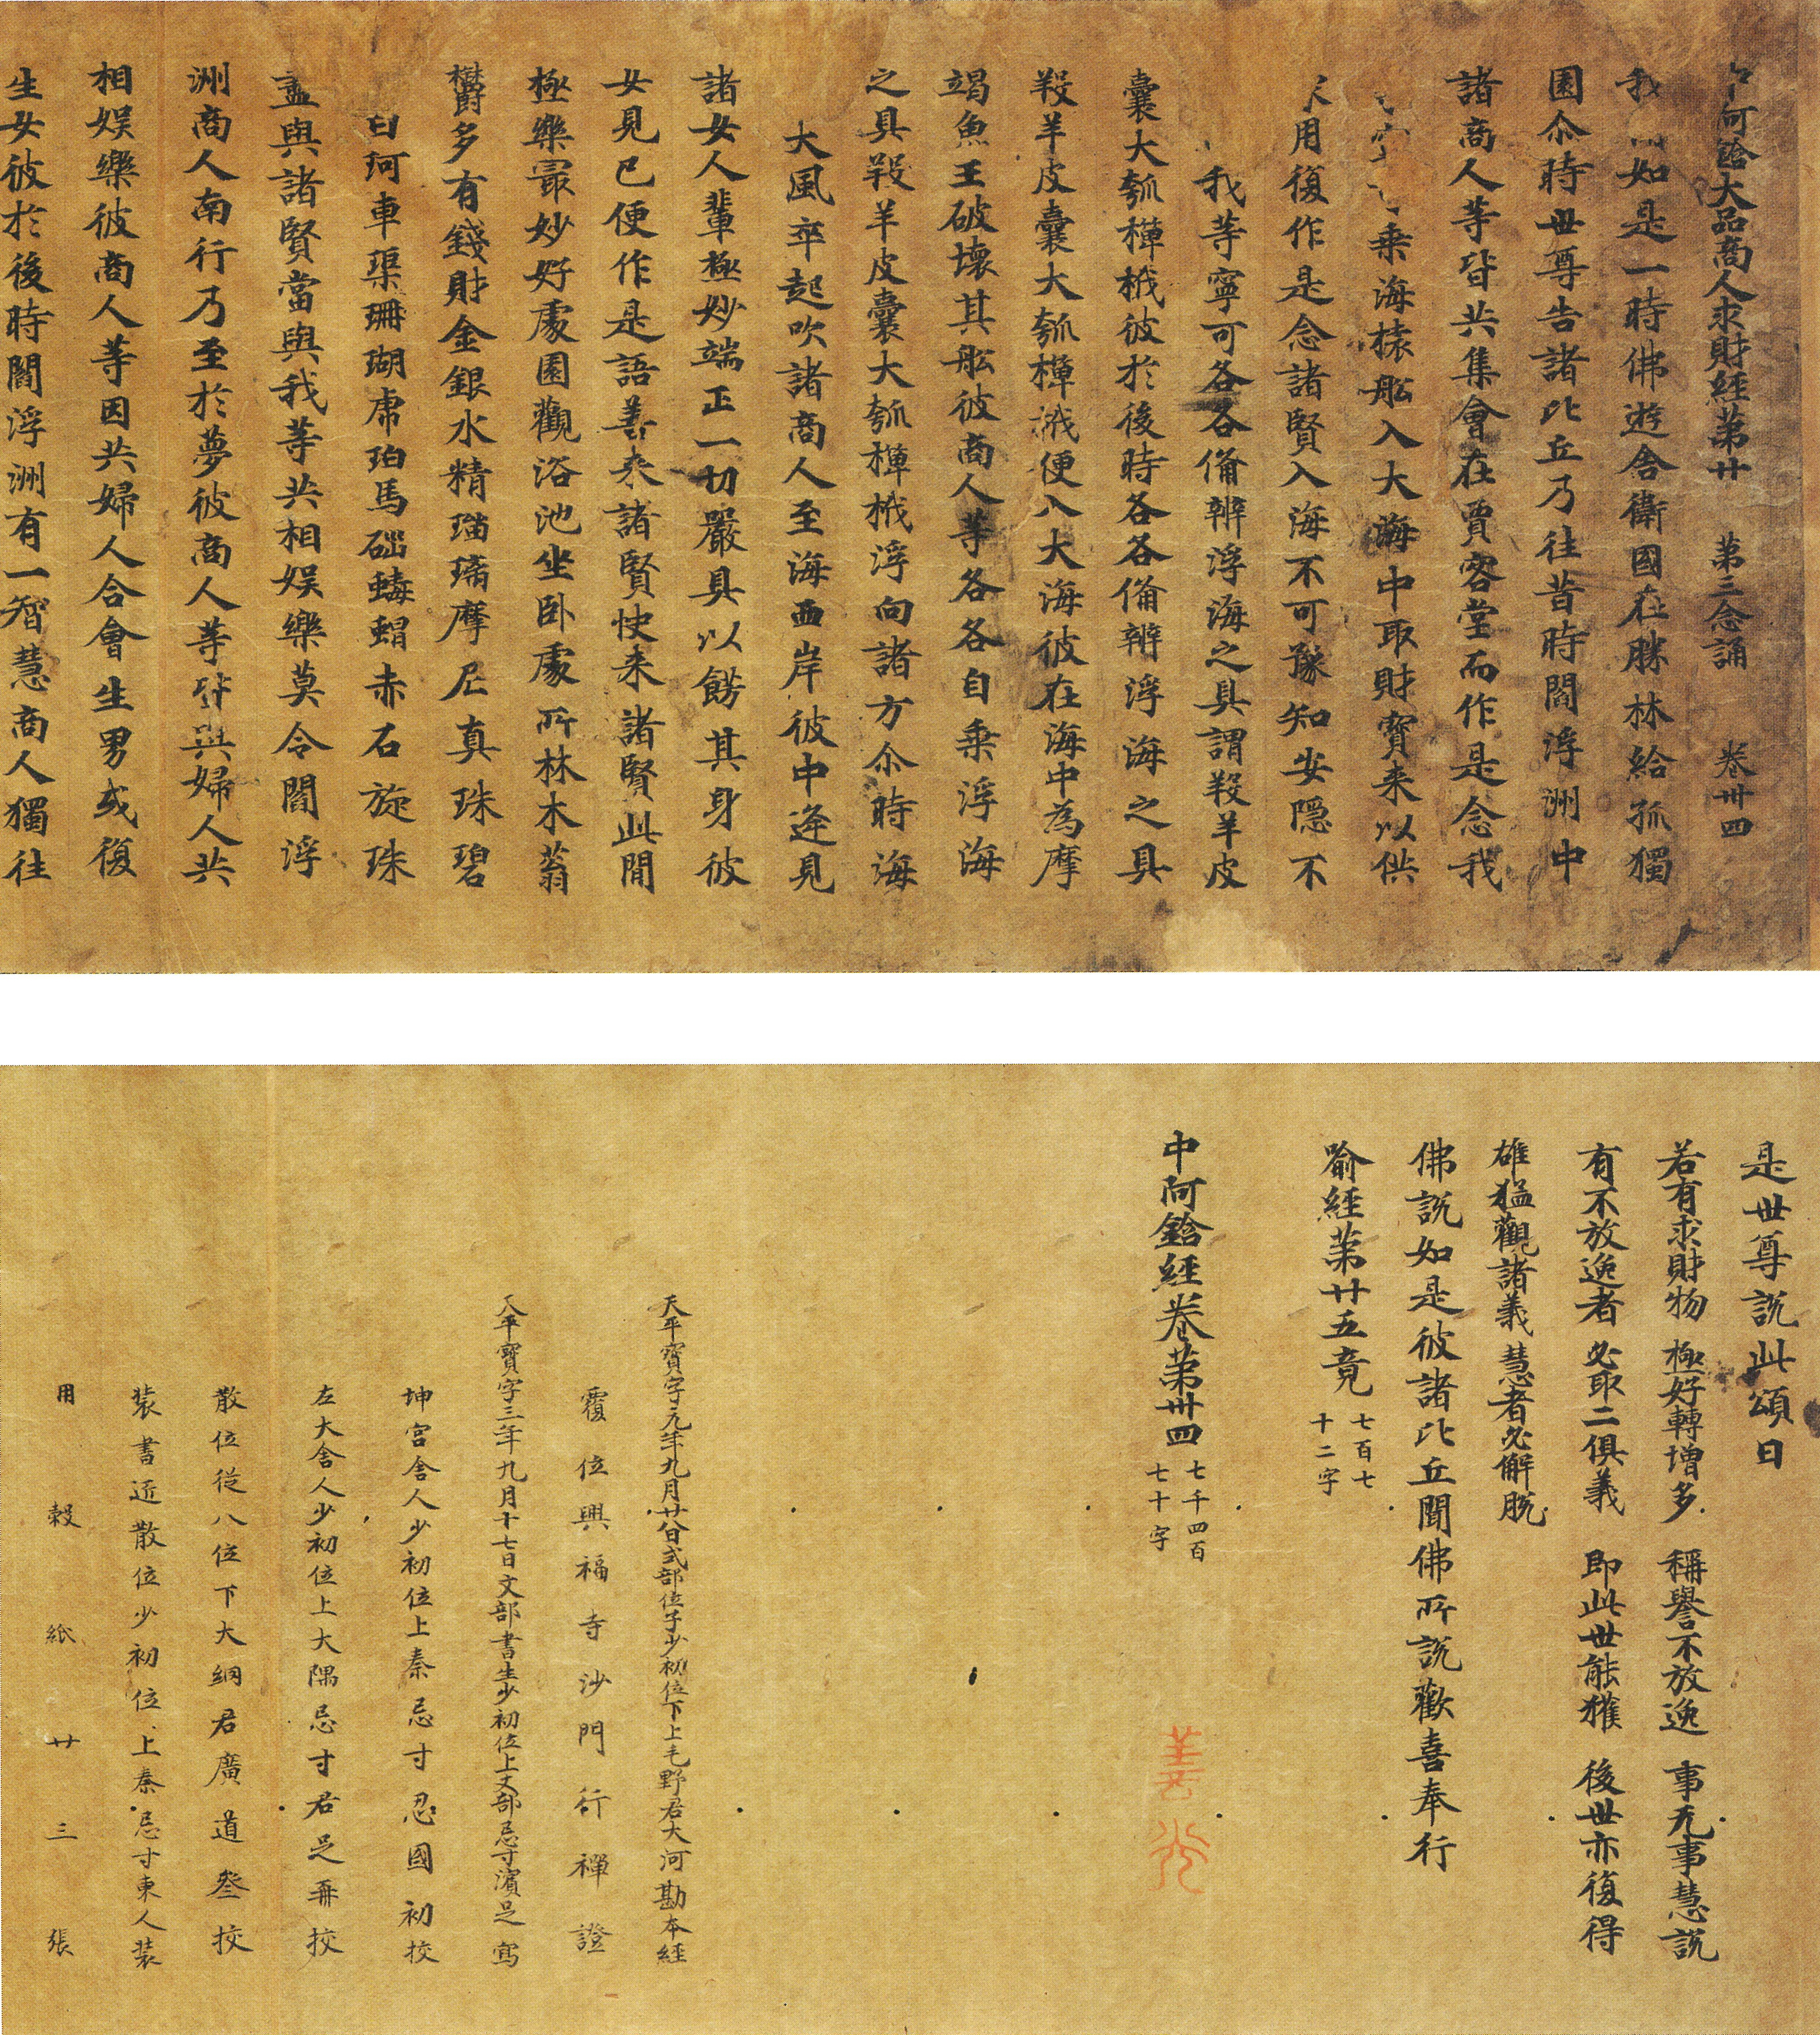 阿鋡大品商人求財經第廿 第三念誦 卷卌四
我聞如是一時佛遊舍衛國在勝林給孤獨
園尒時世尊告諸比丘乃往昔時閻浮洲中
諸商人等皆共集會在賈客堂而作是念我
乘海裝舩入大海中取財寶来以供
用復作是念諸賢入海不可豫知安隱不
我等寧可各各俻辨浮海之具謂羖羊皮
囊大瓠椑栰彼於後時各各俻辦浮海之具
羖羊皮囊大瓠椑栰便入大海彼在海中為摩
竭魚王破壞其舩彼商人等各各自乘浮海
之具羖羊皮囊大瓠椑栰浮向諸方尒時海
大風卒起吹諸商人至海西岸彼中逢見
諸女人輩極妙端正一切嚴具以餝其身彼
女見已便作是語善来諸賢快来諸賢此間
極樂㝡妙好處園觀浴池坐卧處所林木蓊
欝多有錢財金銀水精瑠璃摩尼真珠碧
白珂車渠珊瑚虎珀馬碯蝳蝐赤石旋珠
盡與諸賢當與我等共相娛樂莫令閻浮
洲商人南行乃至於夢彼商人等皆與婦人共
相娛樂彼商人等因共婦人合會生男或復
生女彼於後時閻浮洲有一智慧商人獨往
是世尊說此頌曰
若有求財物 極好轉增多 稱譽不放逸 事无事慧說
有不放逸者 必取二俱義 即此世能獲 後世亦復得
雄猛觀諸義 慧者必解脫
佛說如是彼諸比丘聞佛所說歡喜奉行
喻經第廿五竟 七百七十二字
中阿鋡經卷第卌四 七千四百七十字
善光
天平寶字元年九月廿八日式部位子少初位下上毛野君大河勘本經
覆位興福寺沙門行禪證
天平寶字三年九月十七日文部書生少初位上丈部忌寸濱足寫
坤宮舍人少初位上秦忌寸忍國初挍
左大舍人少初位上大隅忌寸君足再挍
散位從八位下大網君廣道叄挍
裝書近散位少初位上秦忌寸東人裝
用穀紙廿三張